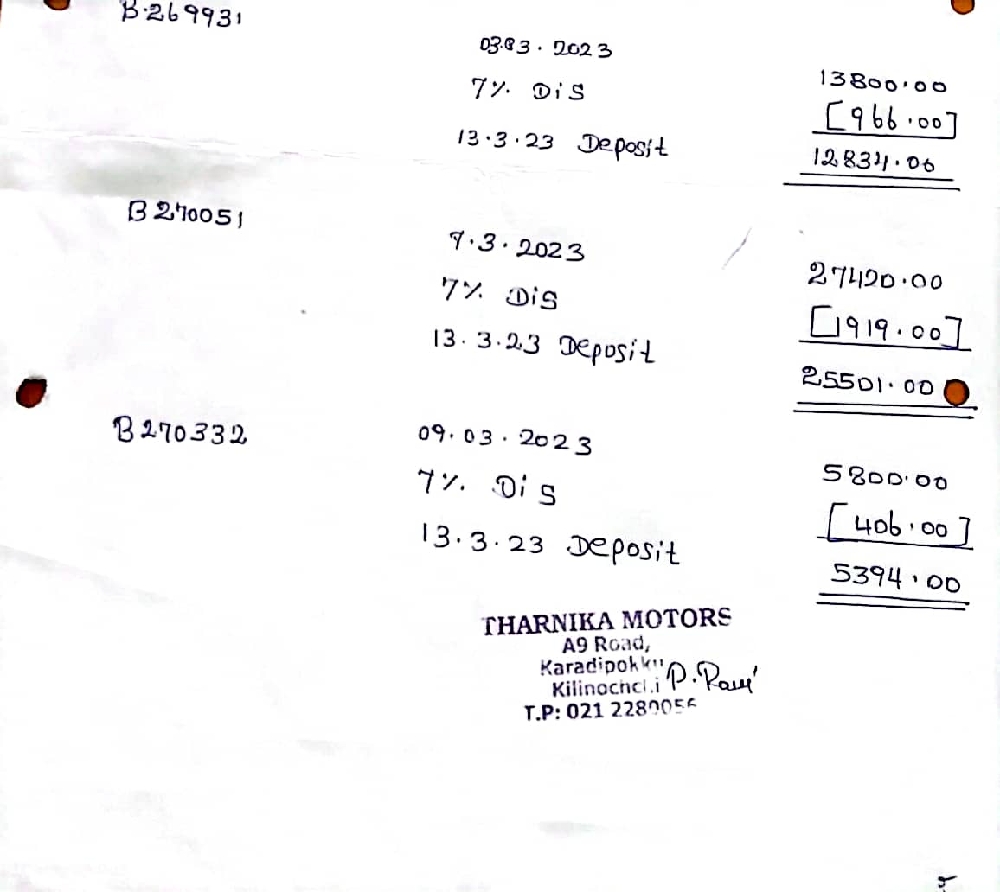 B.269931
03.03.2023
7% Dis 13800.00
[966.00]
13.3.23 Deposit 12834.00
B270051
7.3.2023
7% Dis 27420.00
[1919.00]
13.3.23 Deposit 25501.00
B270332
09.03.2023
7% Dis 5800.00
[406.00]
13.3.23 Deposit 5394.00
THARNIKA MOTORS
A9 Road,
Karadipokku
Kilinochchi
T.P: 021